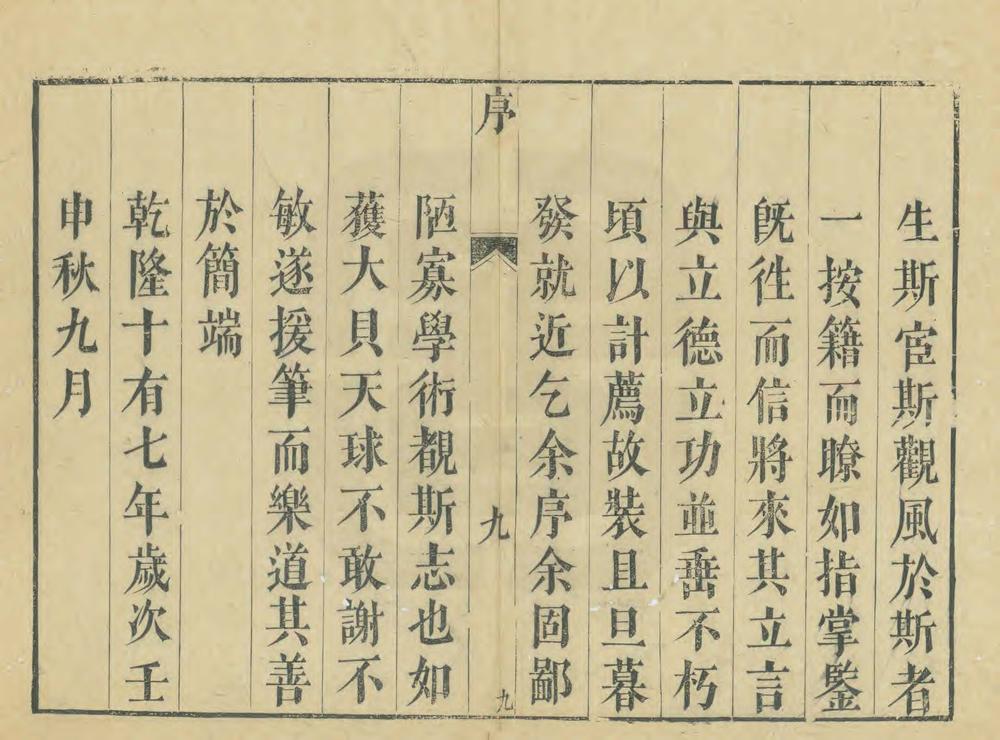 生斯宦斯觀風於斯者
一按籍而瞭如指掌鑒
旣徃而信將來其立言
與立德立功並垂不朽
頃以計薦故裝且旦暮
發就近乞余序余固鄙
序
九
九
陋寡學術覩斯志也如
獲大貝天球不敢謝不
敏遂援筆而樂道其善
於簡端
乾隆十有七年歲次壬
申秋九月